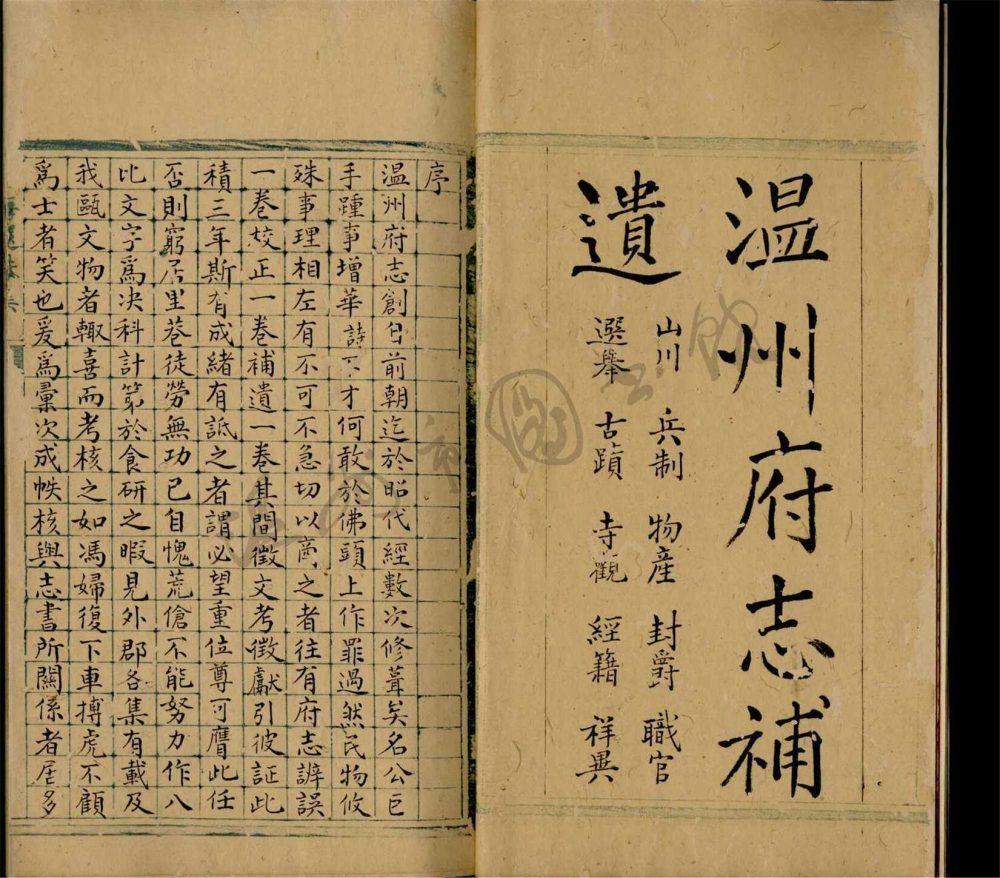 温州府志補
遺
山川 兵制 物產 封爵 職官
選舉 古蹟 寺觀 經籍 祥異
序
温州府志創自前朝迄於昭代經數次修葺矣名公巨
手踵事增華詩下才何敢於佛頭上作罪過然民物攸
殊事理相左有不可不急切以商之者往有府志辨誤
一卷校正一卷補遺一卷其間徵文考徵獻引彼証此
積三年斯有成緒有詆之者謂必望重位尊可膺此任
否則窮居里巷徒勞無功已自愧荒傖不能努力作八
比文字爲决科計第於食研之暇見外郡各集有載及
我甌文物者輙喜而考核之如馮婦復下車搏虎不顧
爲士者笑也爰爲彚次成帙核與志書所關係者居多